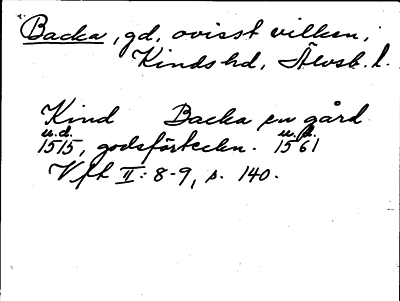 Backa, gd, ovisst vilken,
Kinds hd, Älvsb. l.
Kind Backa en gård
u.d. u.d.
1515, godsförteckn. 1561
Vft II: 8-9, s. 140.